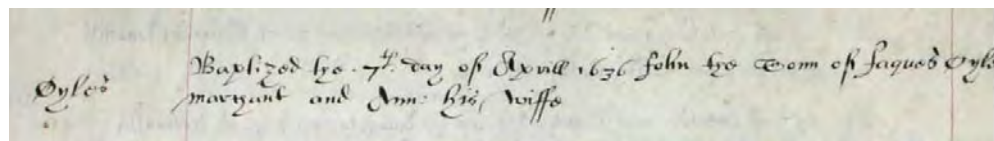 Oyles Baptized the 7th day of Aprill 1636 John the Sonn of Jaques Oyle
marchant and Ann: his wiffe